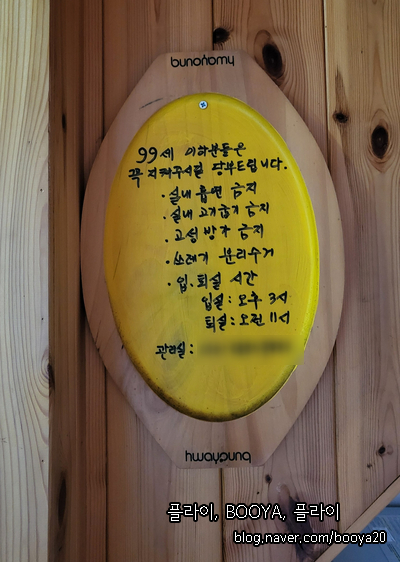 bunohomy
99세 이하분들은
꼭 지켜주시길 당부드립니다.
· 실내 흡연 금지
· 실내 고기굽기 금지
· 고성 방가 금지
· 쓰레기 분리수거
· 입.퇴실 시간
입실 : 오후 3시
퇴실 : 오전 11시
관리실 :
hwaygunq
플라이, BOOYA, 플라이
blog.naver.com/booya20